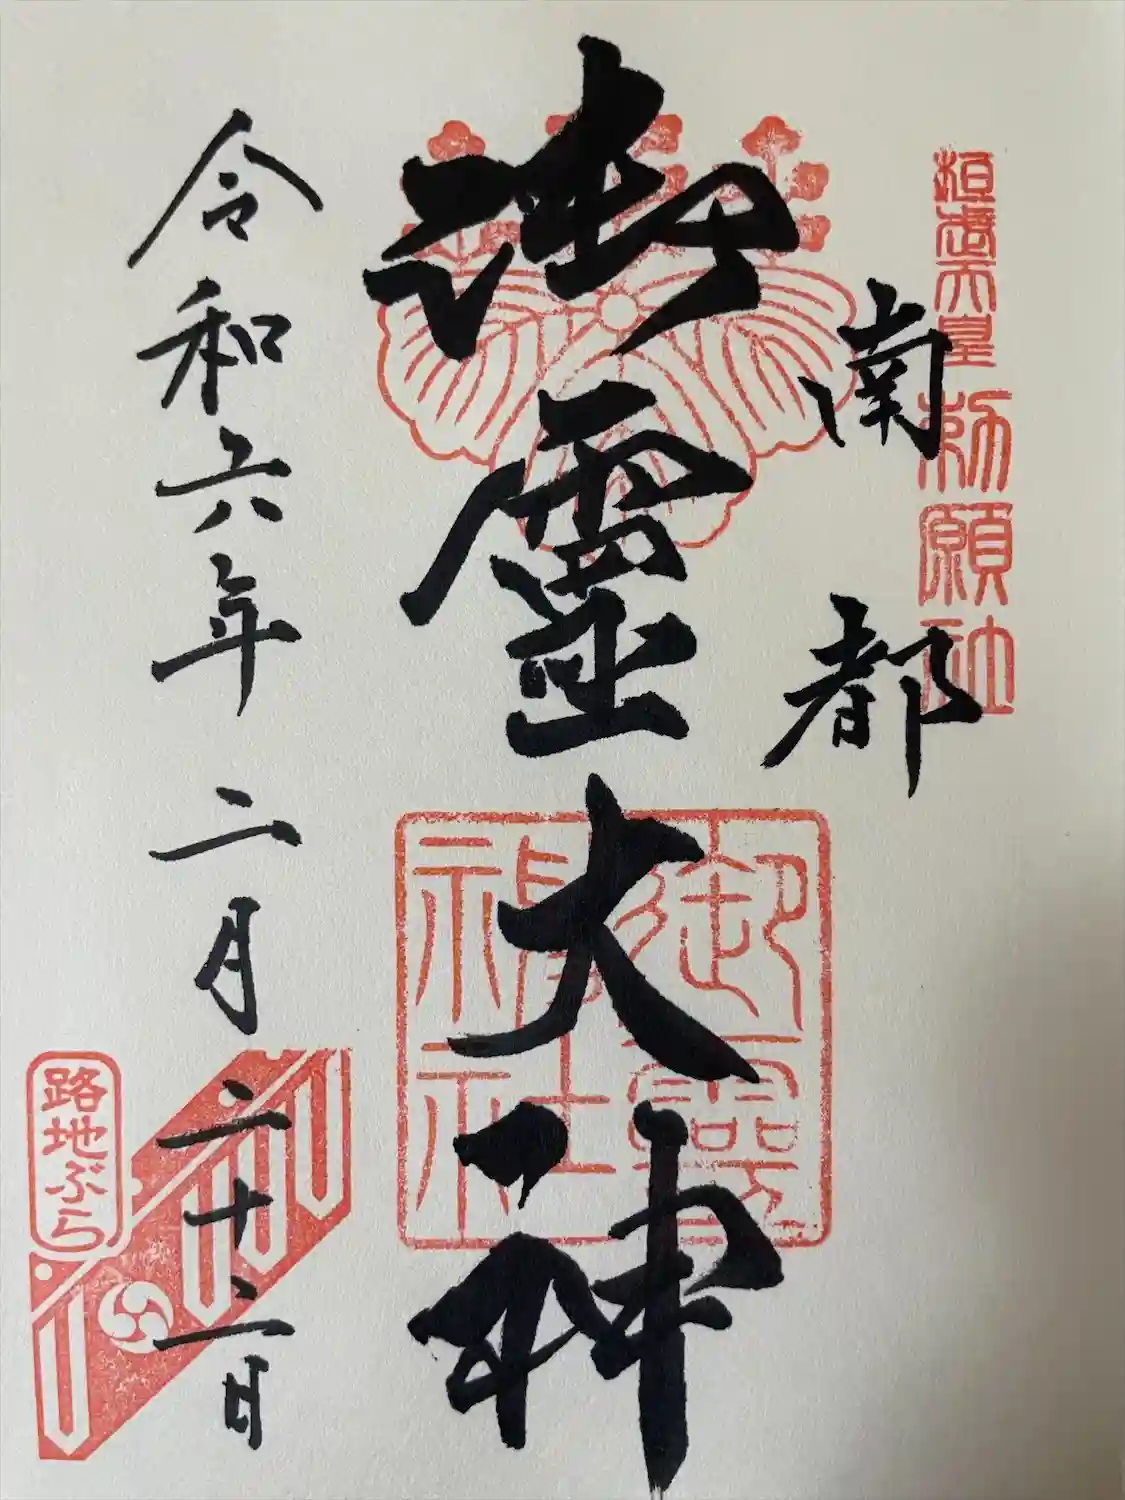 桓武天皇
勅願社
南都
御霊大神
御霊
神社
令和六年二月二十二日
路地ぶら